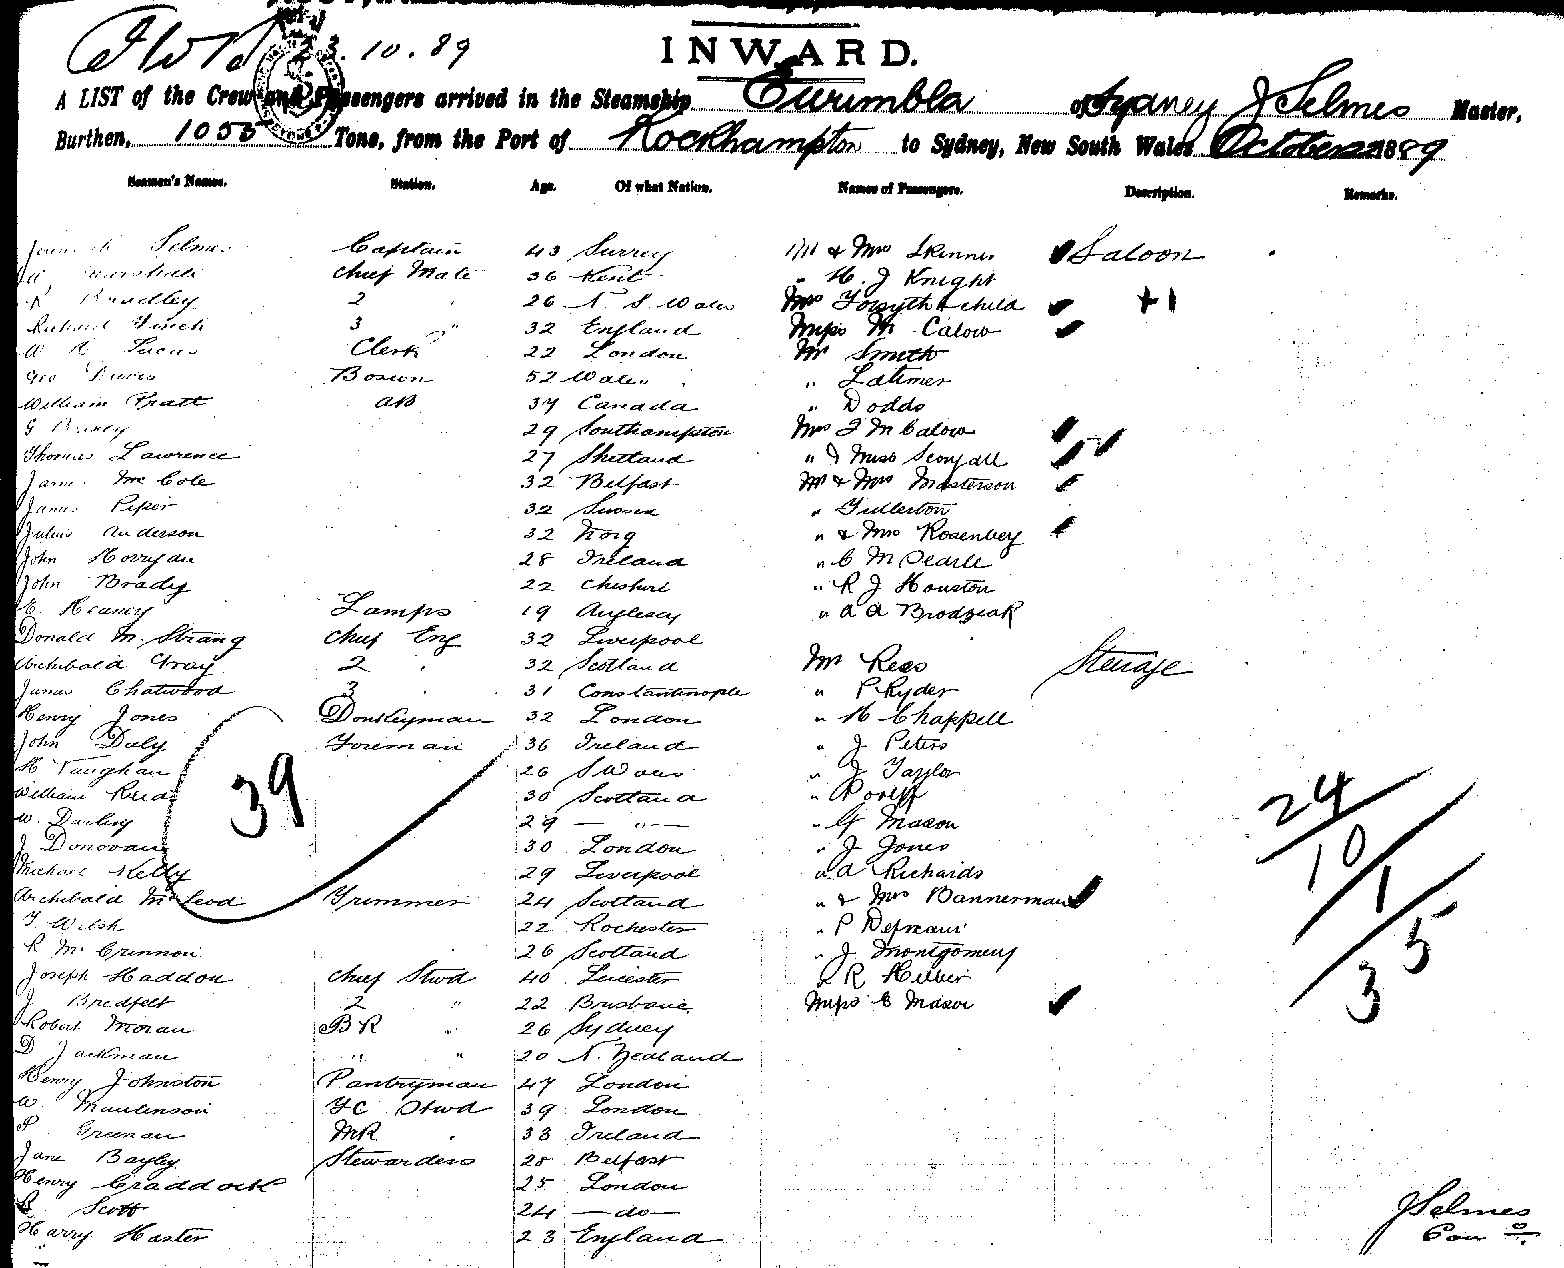 23.10.89
INWARD.
A LIST of the Crew and Passengers arrived in the Steamship Eurimbla of Sydney J Selmes Master,
Burthen, 1055 Tons, from the Port of Rockhampton to Sydney, New South Wales October 1889
Seamen's Names. Station. Age. Of what Nation. Names of Passengers. Description. Remarks.
Selmes Captain 43 Surrey & Mrs Skinner Saloon
Chief Mate 36 Kent " H. J Knight
R Bradley 2 " 26 N. S Wales Mrs Forsyth + child +1
Richard Finch 3 " 32 England Miss M Calow
W Lucas Clerk 22 London Mr Smith
Geo 52 Wales " Latimer
William Pratt AB 37 Canada " Dodds
G 29 Southampton Mrs F M Calow
Thomas Lawrence 27 Shetland " & Miss
James Mc Cole 32 Belfast Mr & Mrs Masterson
James Piper 32 Sussex " Fullerton
Julius Anderson 32 Norg " & Mrs Rosenberg
John 28 Ireland "
John Brady 22 Cheshire " R J Houston
E. Heaney Lamps 19 Anglesey " A A Brodziak
Donald M. Strang Chief Eng 32 Liverpool
Archibald Gray 2 " 32 Scotland Mr Rees Steerage
James Chatwood 3 " 31 Constantinople " P Ryder
Henry Jones Donkeyman 32 London " H Chappell
John Daly Foreman 36 Ireland " J Peters
H Vaughan 26 S Wales " J Taylor
William Reid 30 Scotland "
W. Darley 29 — " — " G Mason
J Donovan 30 London " J Jones
Michael Kelly 29 Liverpool " A Richards
Archibald McLeod Trimmer 24 Scotland " & Mrs Bannerman
T Welsh 22 Rochester " P
R Mc Crimmon 26 Scotland " J Montgomery
Joseph Haddon Chief Stwd 40 Leicester " R
J Bredfelt 2 " 22 Brisbane Miss C Mason
Robert Moran BR " 26 Sydney
D Jackman " " 20 N. Zealand
Henry Johnston Pantryman 47 London
W Mawlinson FC Stwd 39 London
P Greenan MR " 33 Ireland
Jane Bayley Stewardess 28 Belfast
Henry Craddock 25 London
Scott 24 — do —
Harry Haster 23 England
39
24
10
1
35
J Selmes